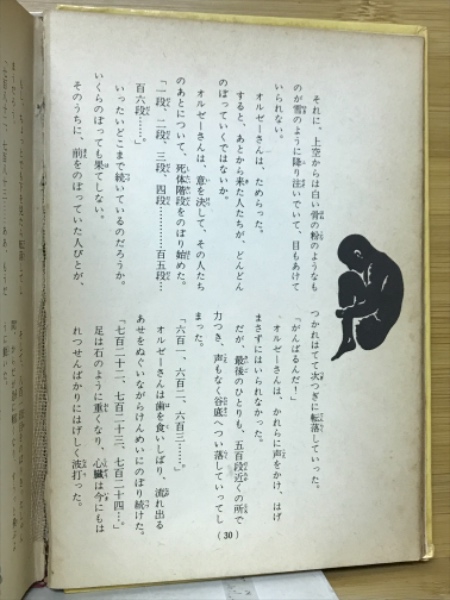 それに、上空からは白い骨の粉のようなも
のが雪のように降り注いでいて、目もあけて
いられない。
オルゼーさんは、ためらった。
すると、あとから来た人たちが、どんどん
のぼっていくではないか。
オルゼーさんは、意を決して、その人たち
のあとについて、死体階段をのぼり始めた。
「一段、二段、三段、四段…………百五段…
百六段……。」
いったいどこまで続いているのだろうか。
いくらのぼっても果てしない。
そのうちに、前をのぼっていた人びとが、
つかれはてて次つぎに転落していった。
「がんばるんだ！」
オルゼーさんは、かれらに声をかけ、はげ
まさずにはいられなかった。
だが、最後のひとりも、五百段近くの所で
力つき、声もなく谷底へつい落していってし
まった。
「六百一、六百二、六百三……。」
オルゼーさんは歯を食いしばり、流れ出る
あせをぬぐいながらけんめいにのぼり続けた。
「七百二十二、七百二十三、七百二十四…。」
足は石のように重くなり、心臓は今にもは
れつせんばかりにはげしく波打った。
(30)